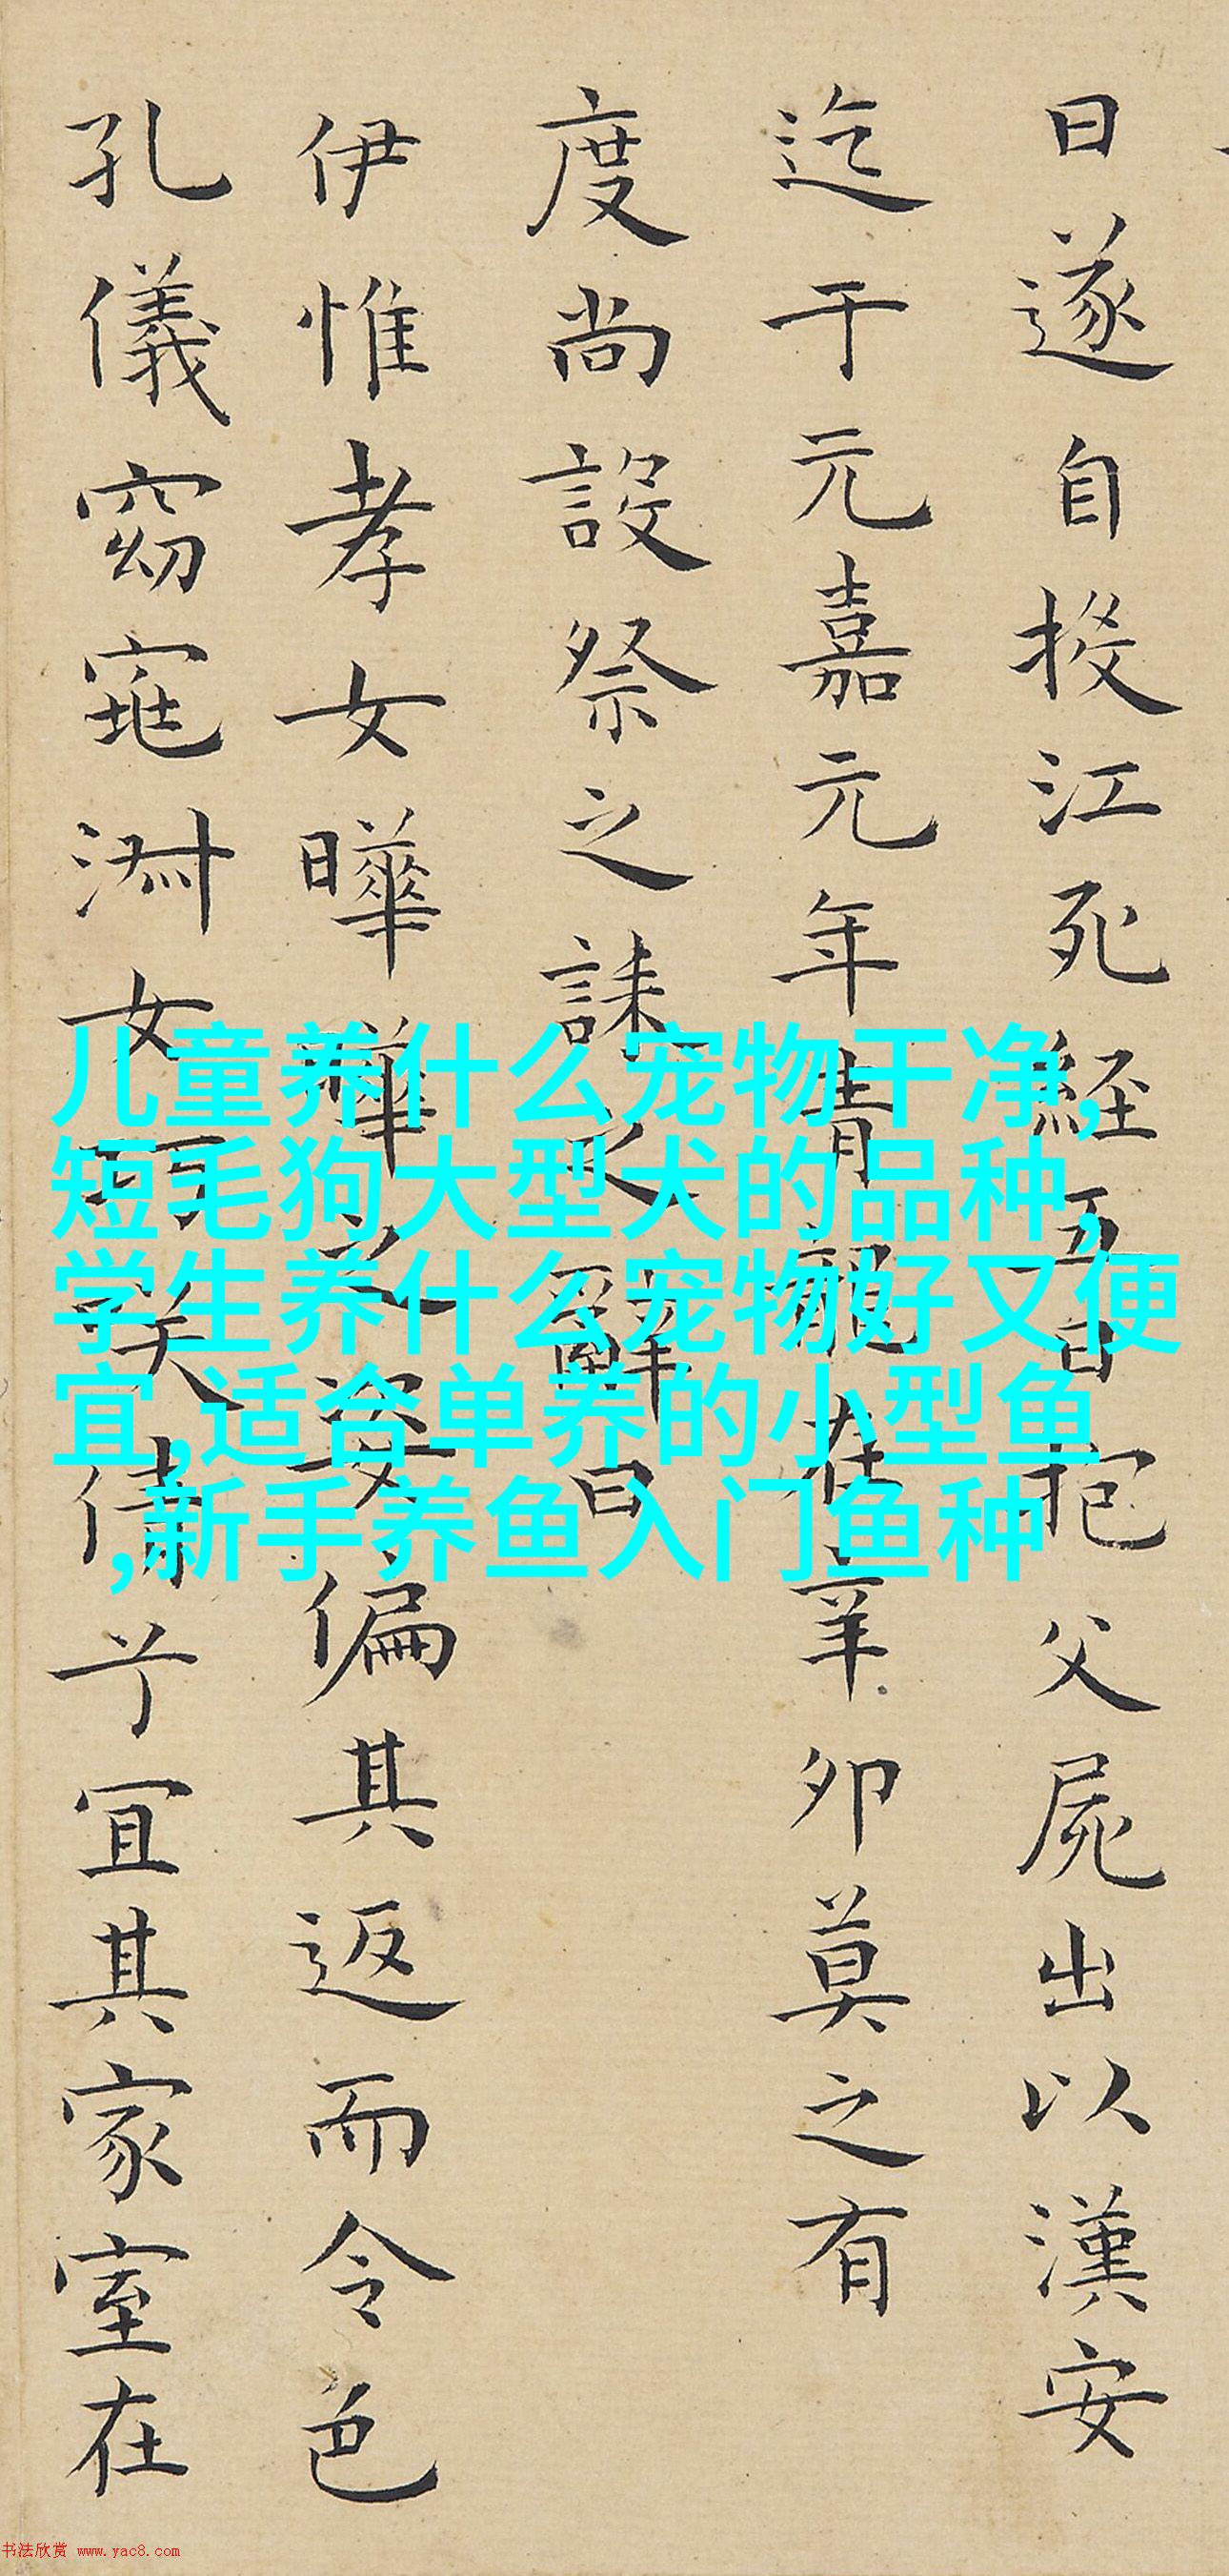 日遂自投江死經五日抱父屍出以漢安
迄于元嘉元年青龍在辛卯莫之有
度尚設祭之誄之辭曰
伊惟孝女曄曄之姿偏其返而令色
孔儀窈窕淑女巧笑倩兮宜其家室在
儿童养什么宠物干净,
短毛狗大型犬的品种,
学生养什么宠物好又便
宜,适合单养的小型鱼
,新手养鱼入门鱼种
书法欣赏 www.yac8.com